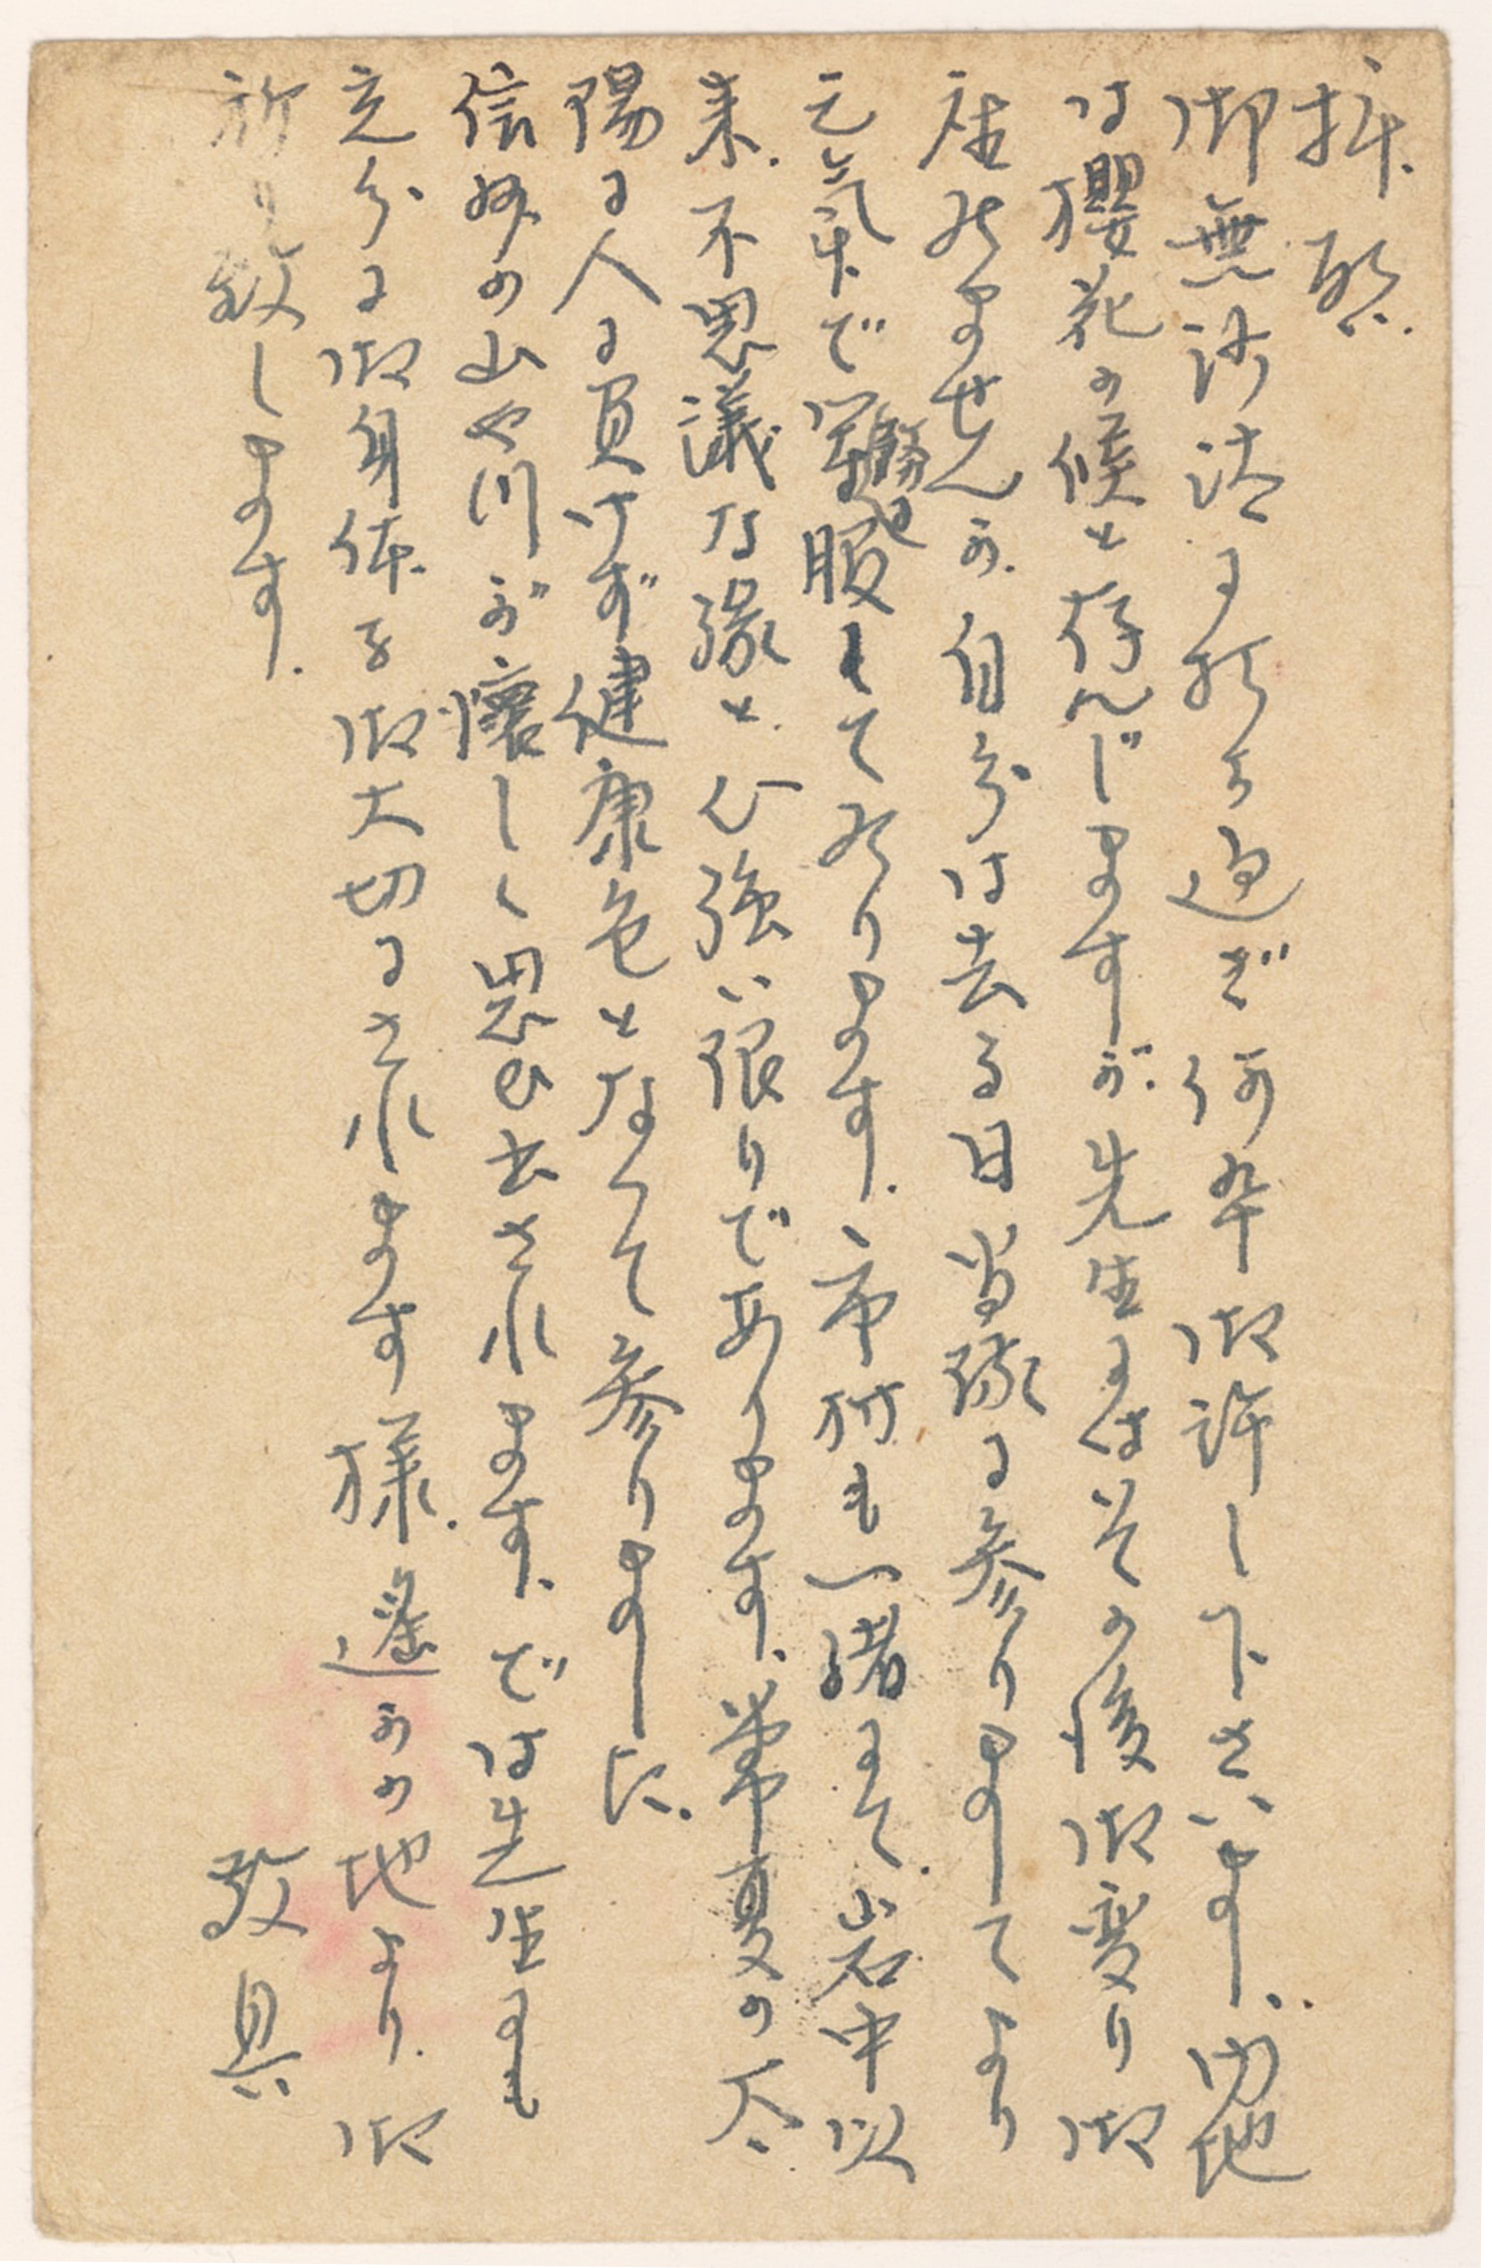 拝啓
御無沙汰に打ち過ぎ何卒御許し下さいまし、内地
は櫻花の候と存んじますが先生にはその後御変り御
座居ませんか、自分は去る日当隊に参りましてより
元氣で軍務に服して居ります、市村も一緒にて、岩中以
来、不思議な縁と心強い限りであります、常夏の太
陽に人に負けず健康色となつて参りました、
信州の山や川が懐しく思ひ出されます、では先生にも
充分に御身体を御大切にされます様、遙かの地より、御
祈り致します、
敬具